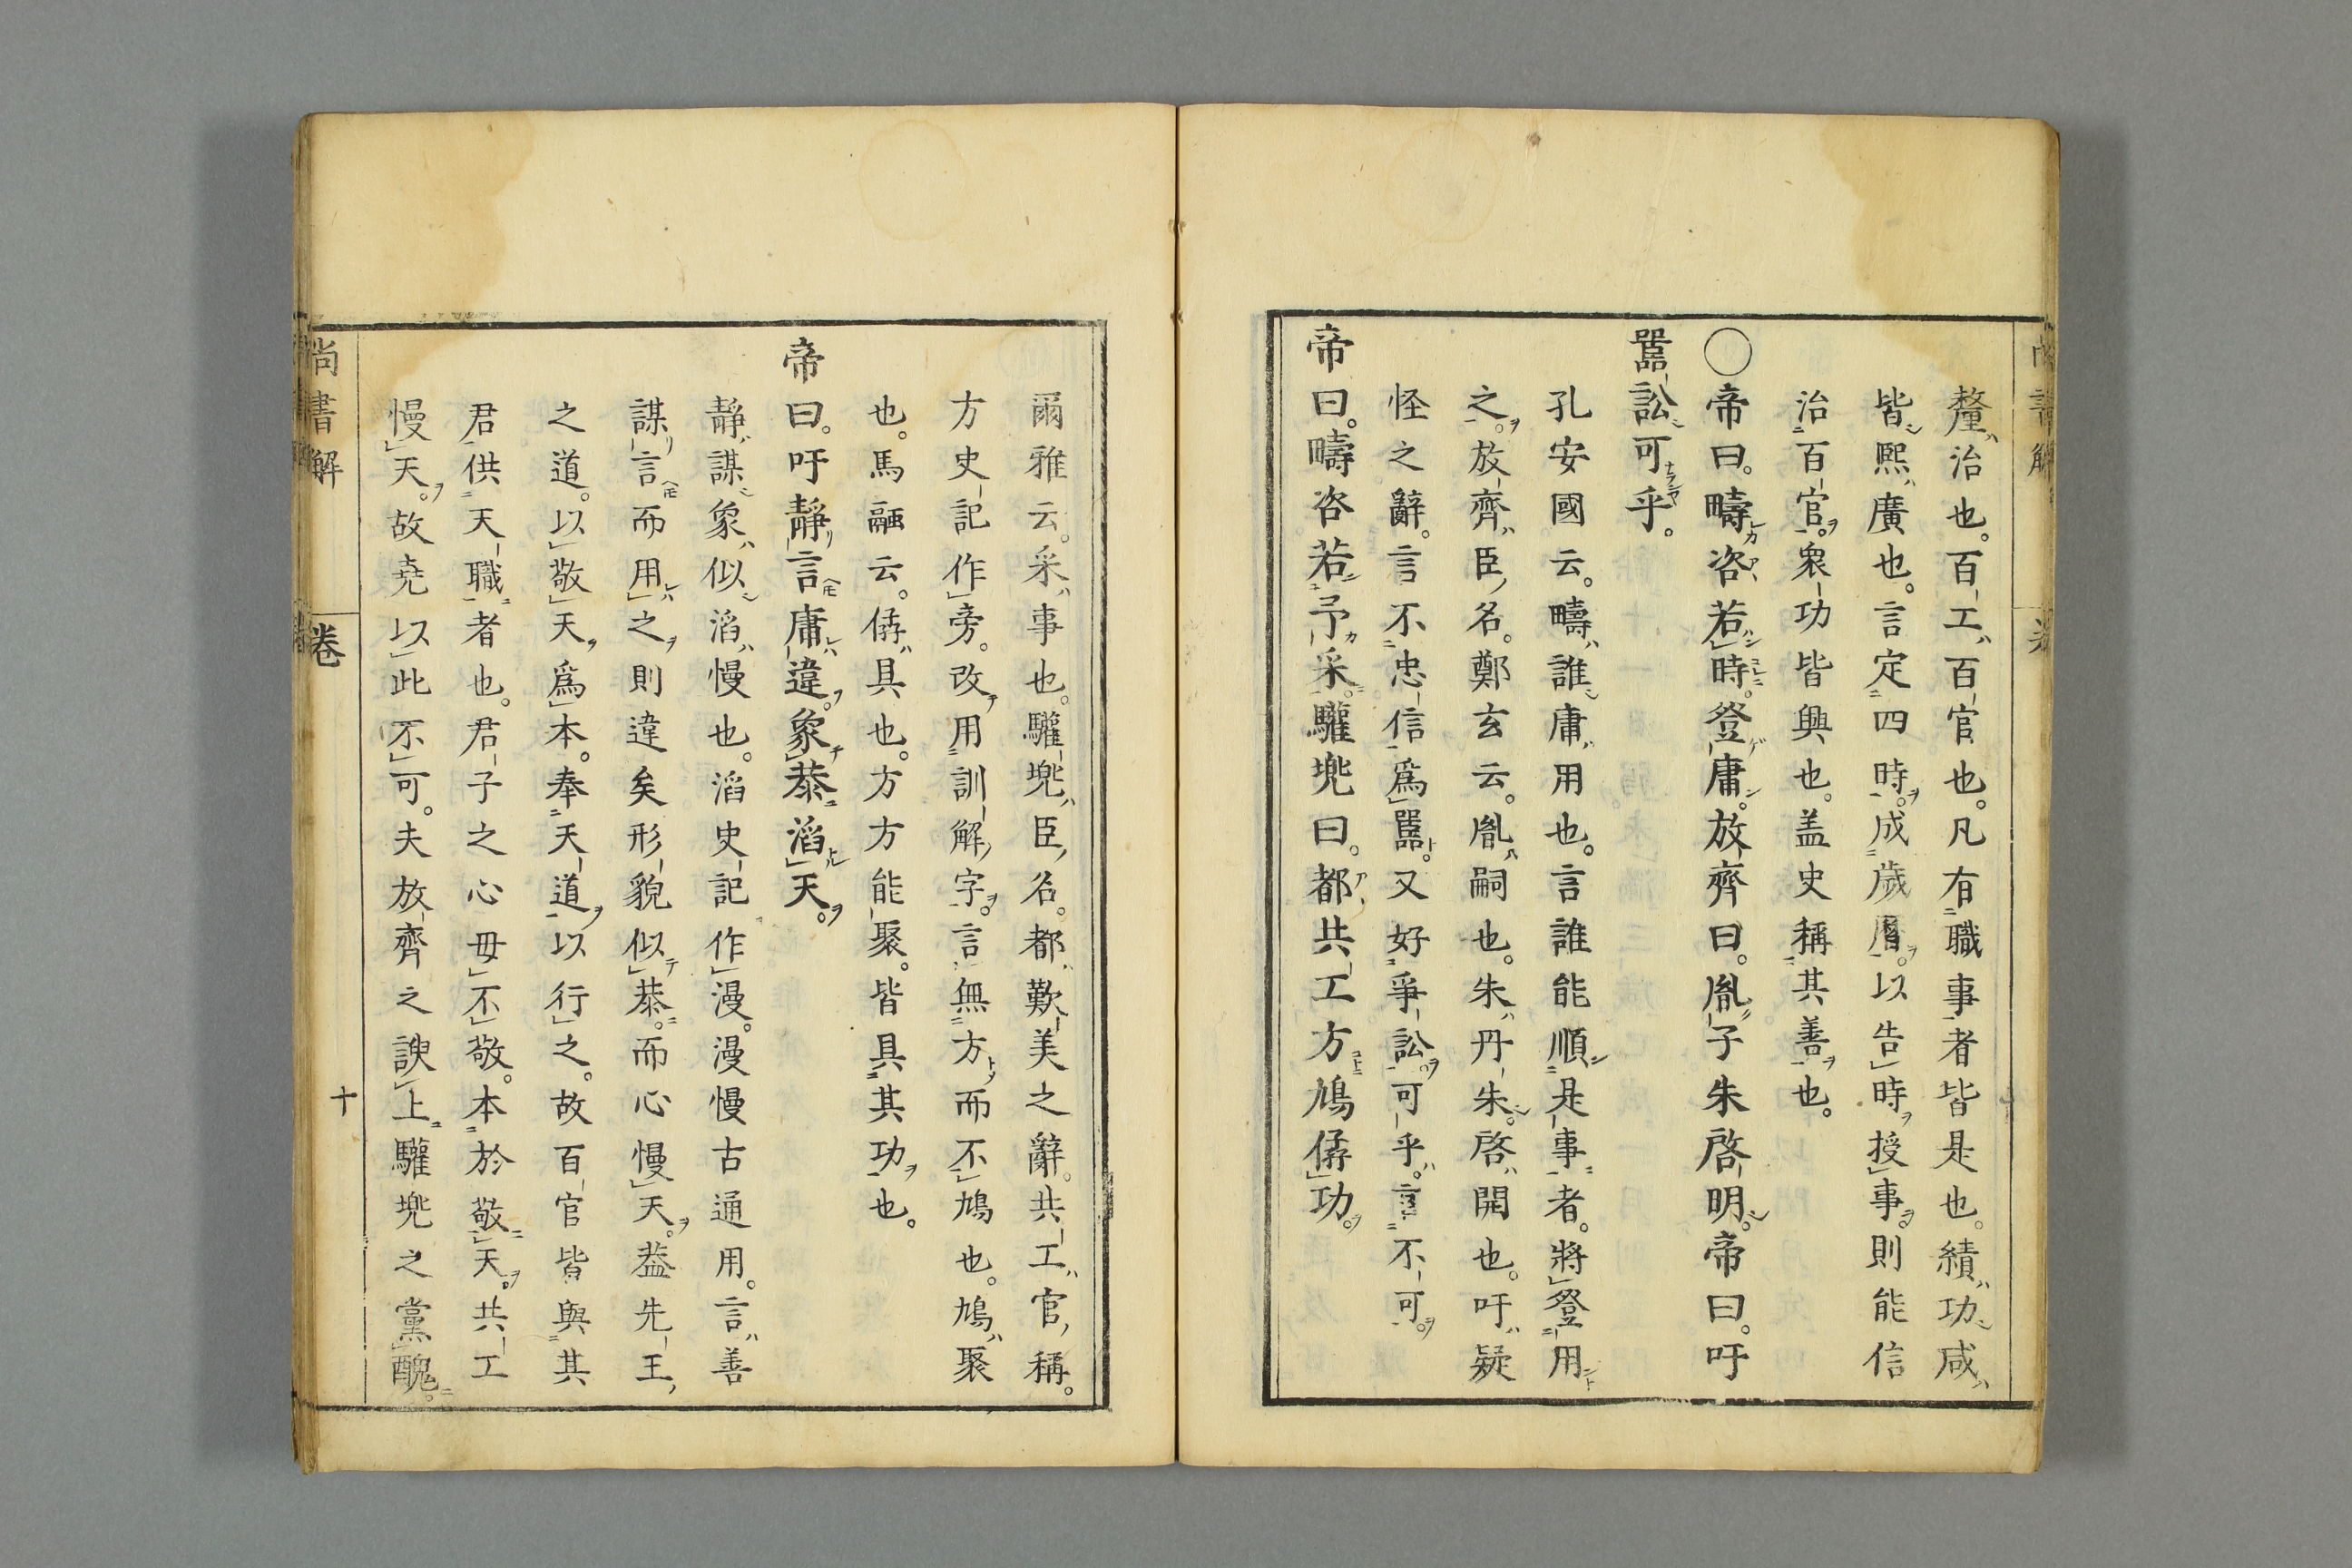 釐治也。百工百官也。凡有職事者皆是也。績功咸
皆熙廣也。言定四時。成歲曆。以告時授事。則能信
治百官。衆功皆興也。盖史稱其善也。
〇帝曰。疇咨若時。登庸。放齊曰。胤子朱啓明。帝曰。吁
嚚訟可乎。
孔安國云。疇誰庸用也。言誰能順是事者。將登用
之。放齊臣名。鄭玄云。胤嗣也。朱丹朱。啓開也。吁疑
怪之辭。言不忠信爲嚚。又好爭訟。可乎。言不可。
帝曰。疇咨若予采。驩兜曰。都共工方鳩僝功。
爾雅云。采事也。驩兜臣名。都歎美之辭。共工官稱。
方史記作旁。改用訓解字。言無方而不鳩也。鳩聚
也。馬融云。僝具也。方方能聚。皆具其功也。
帝曰。吁靜言庸違。象恭滔天。
靜謀象似滔慢也。滔史記作漫。漫慢古通用。言善
謀言而用之則違矣形貌似恭。而心慢天。葢先王
之道。以敬天爲本。奉天道以行之。故百官皆與其
君供天職者也。君子之心毋不敬。本於敬天。共工
慢天。故堯以此不可。夫放齊之諛上驩兜之黨醜。
尚書解
卷
十